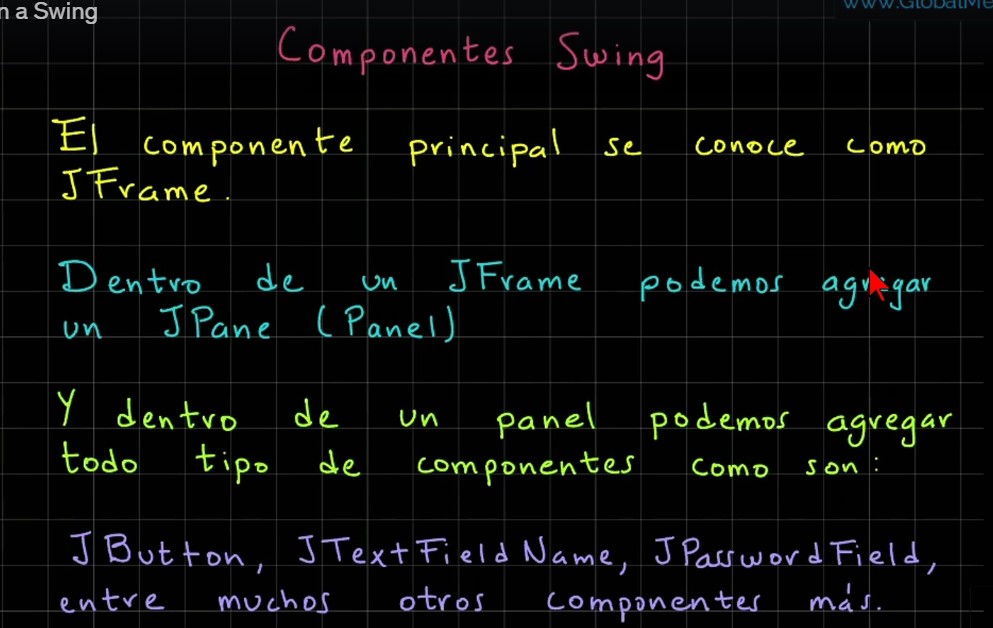 n a Swing
Componentes Swing
El componente principal se conoce como
JFrame.
Dentro de un JFrame podemos agregar
un JPane (Panel)
Y dentro de un panel podemos agregar
todo tipo de componentes como son:
JButton, JTextFieldName, JPasswordField,
entre muchos otros componentes más.